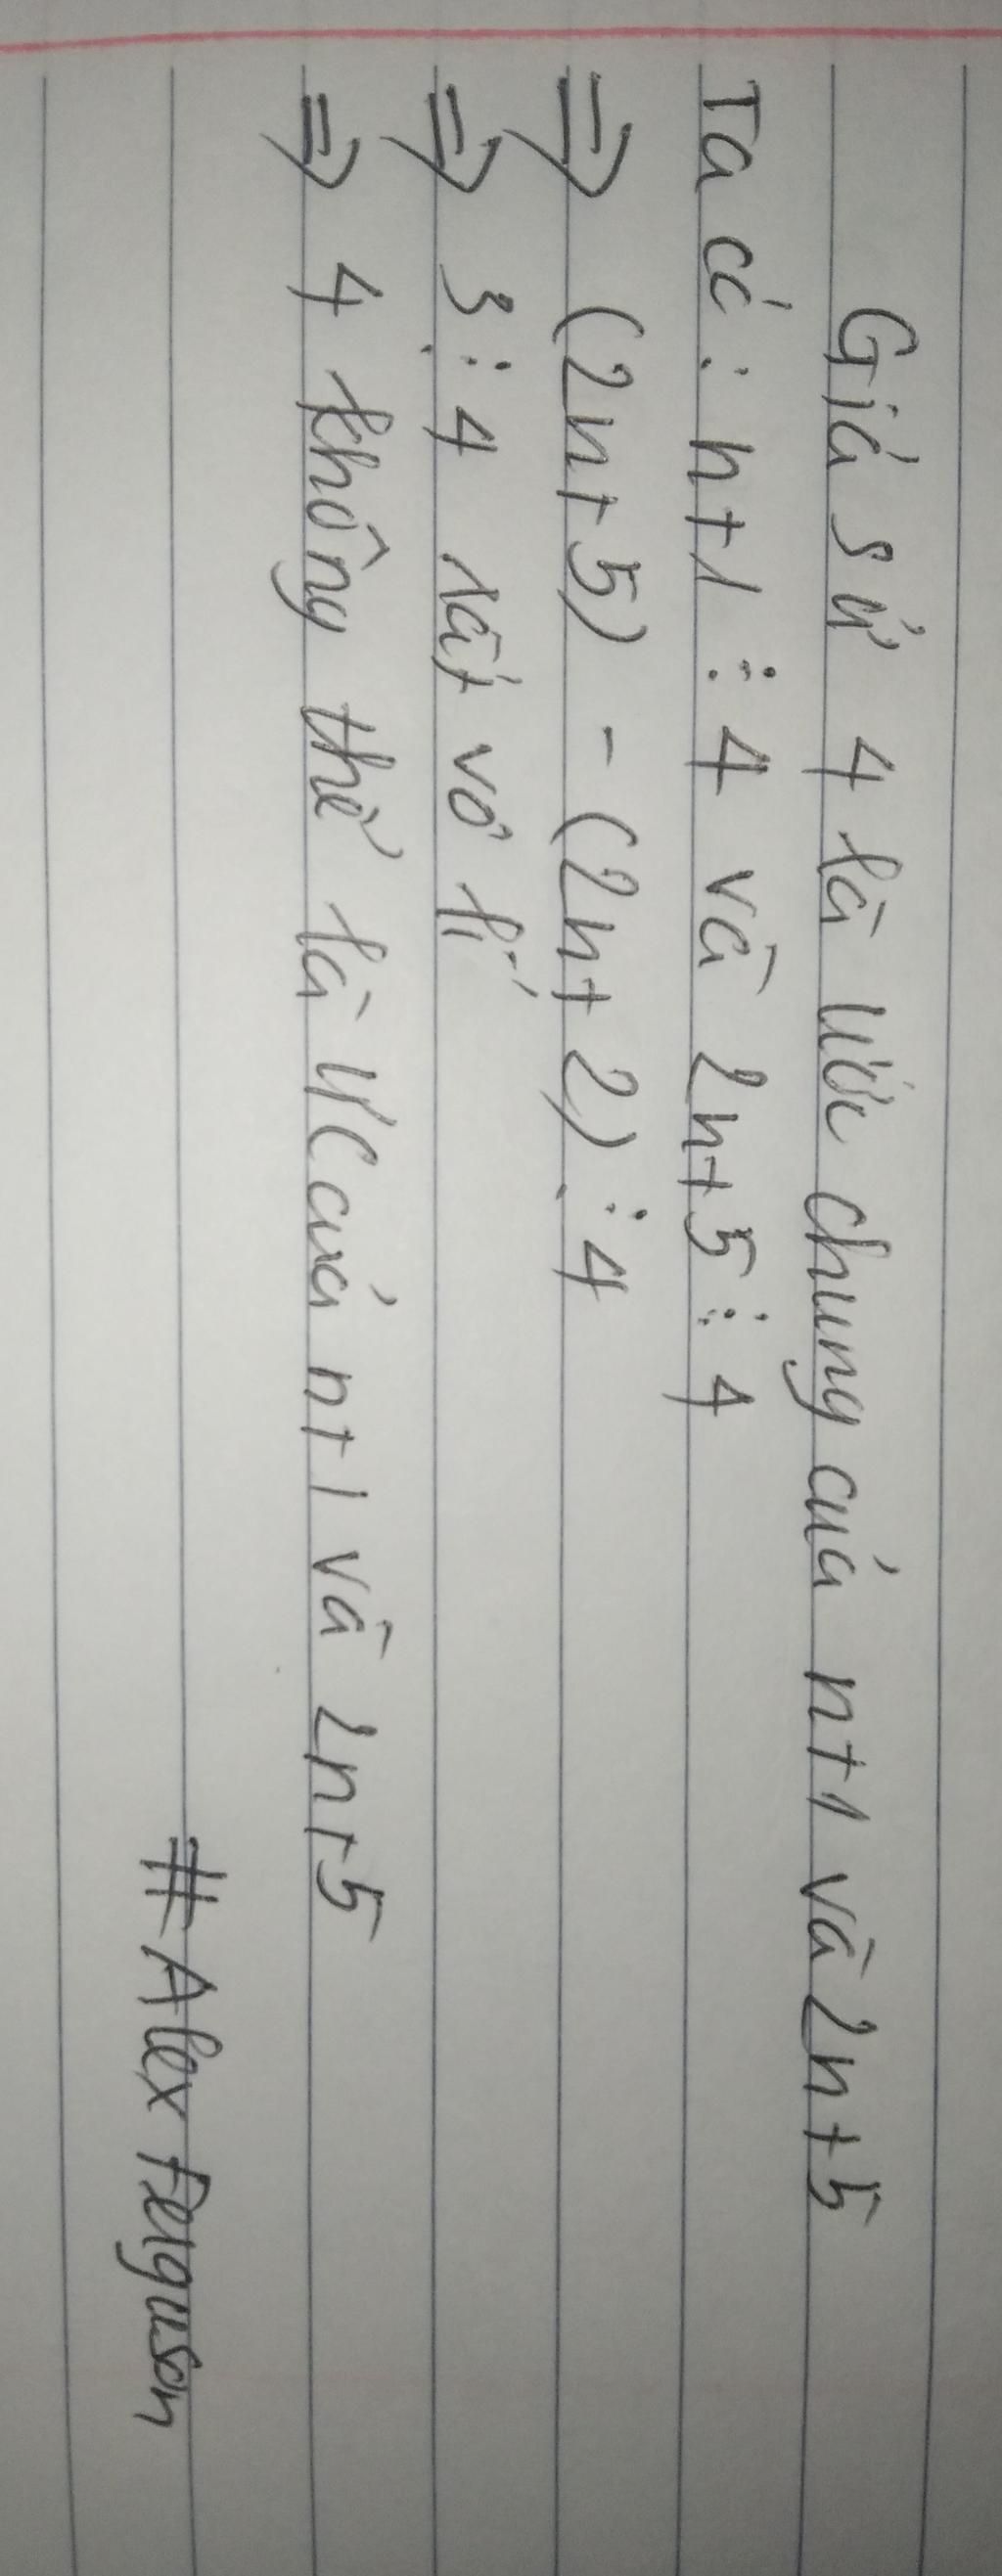 Giả sử 4 là ước chung của n+1 và 2n+5
Ta có: n+1 ⋮ 4 và 2n+5 ⋮ 4
⇒ (2n+5) - (2n+2) ⋮ 4
⇒ 3 ⋮ 4 rất vô lí
⇒ 4 không thể là ƯC của n+1 và 2n+5
#Alex Ferguson